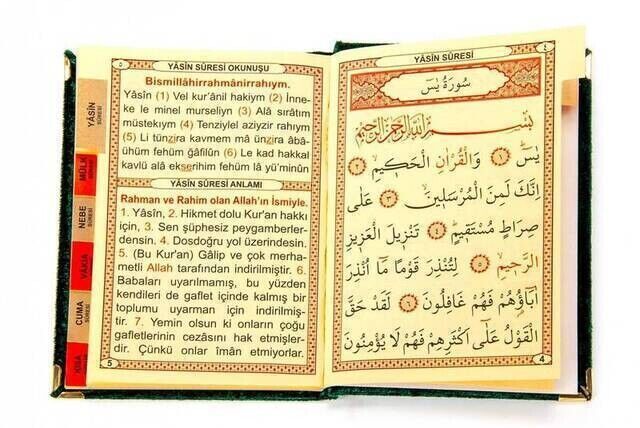 YÂSİN SÛRESİ
٤
سُورَةُ يٰسٓ
بِسْــمِ اللّٰهِ الرَّحْمٰنِ الرَّحٖيمِ
يٰسٓ ﴿١﴾ وَالْقُرْاٰنِ الْحَكٖيمِ ﴿٢﴾
اِنَّكَ لَمِنَ الْمُرْسَلٖينَ ﴿٣﴾ عَلٰى
صِرَاطٍ مُسْتَقٖيمٍ ﴿٤﴾ تَنْزٖيلَ الْعَزٖيزِ
الرَّحٖيمِ ﴿٥﴾ لِتُنْذِرَ قَوْمًا مَٓا اُنْذِرَ
اٰبَٓاؤُ۬هُمْ فَهُمْ غَافِلُونَ ﴿٦﴾ لَقَدْ حَقَّ
الْقَوْلُ عَلٰٓى اَكْثَرِهِمْ فَهُمْ لَا يُؤْمِنُونَ
4
٥
YÂSİN SÛRESİ OKUNUŞU
Bismillâhirrahmânirrahıym.
Yâsîn (1) Vel kur'ânil hakiym (2) İnne-
ke le minel murseliyn (3) Alâ sırâtım
müstekıym (4) Tenziylel aziyzir rahıym
(5) Li tünzira kavmem mâ ünzira âbâ-
ühüm fehüm ğâfilûn (6) Le kad hakkal
kavlü alâ ekserihim fehüm lâ yü'minûn
YÂSİN SÛRESİ ANLAMI
Rahman ve Rahim olan Allah'ın İsmiyle.
1. Yâsîn, 2. Hikmet dolu Kur'an hakkı
için, 3. Sen şüphesiz peygamberler-
densin. 4. Dosdoğru yol üzerindesin.
5. (Bu Kur'an) Gâlip ve çok merha-
metli Allah tarafından indirilmiştir. 6.
Babaları uyarılmamış, bu yüzden
kendileri de gaflet içinde kalmış bir
toplumu uyarman için indirilmiş-
tir. 7. Yemin olsun ki onların çoğu
gafletlerinin cezasını hak etmişler-
dir. Çünkü onlar îmân etmiyorlar.
5
YÂSİN
SÛRESİ
MÜLK
SÛRESİ
NEBE
SÛRESİ
VÂKIA
SÛRESİ
CUMA
SÛRESİ
KISA